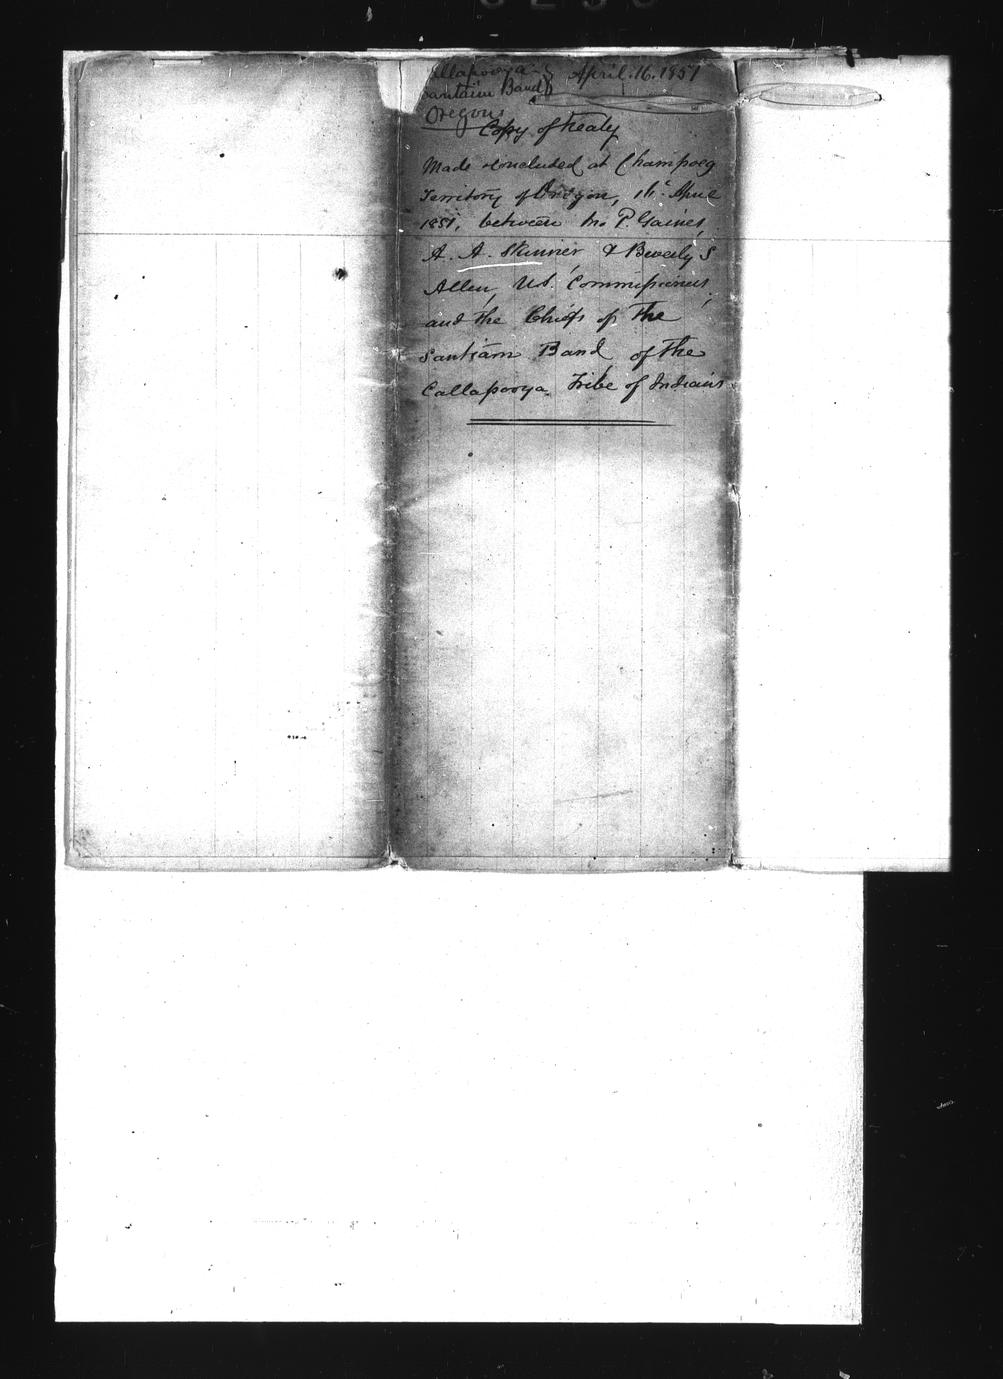 Callapooya - & April. 16. 1851
Santaim Band
Oregon
Copy of treaty
Made & concluded at Champoeg
Territory of Oregon, 16th April
1851, between Jno P. Gaines,
A. A. Skinner & Beverly S
Allen, U.S. Commissioners,
and the Chiefs of the
Santiam Band of the
Callapooya Tribe of Indians